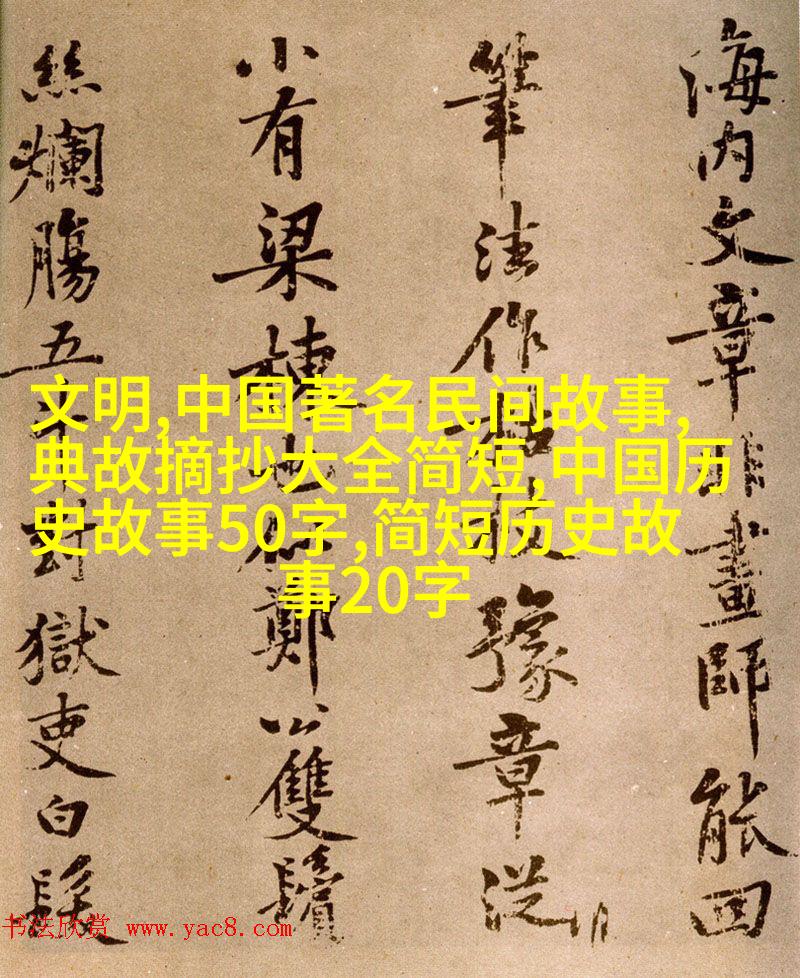 海内文章非畫師能回
筆法作枯枝豫章從
小有梁棟也似鄭公雙鬢
絲爛腸五斗對獄吏白髮
文明,中国著名民间故事,
典故摘抄大全简短,中国历
史故事50字,简短历史故
事20字
书法欣赏 www.yac8.com